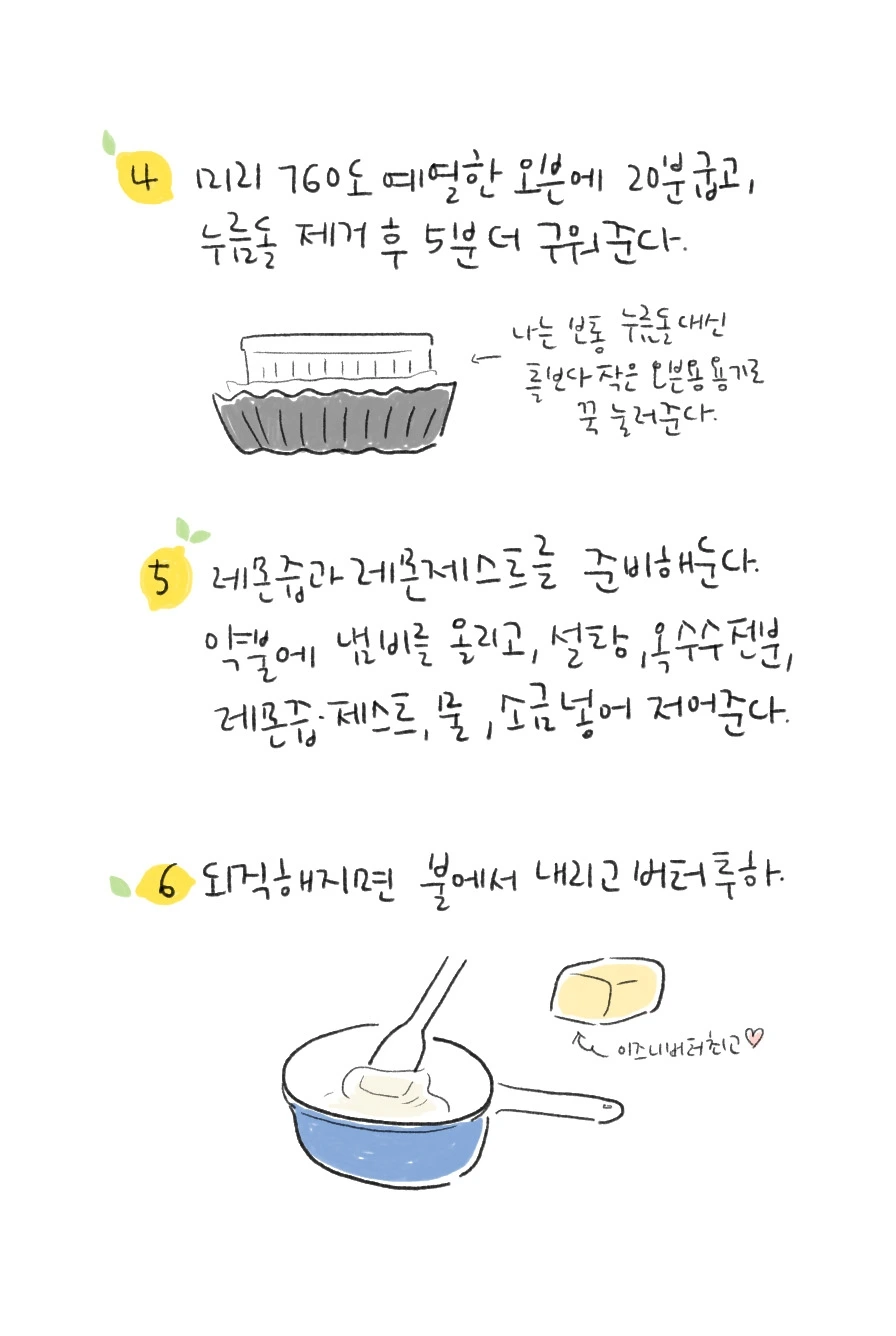 4 미리 760도 예열한 오븐에 20분굽고,
누름돌 제거 후 5분 더 구워준다.
나는 보통 누름돌대신
틀보다 작은 오븐용 용기로
꾹 눌러준다.
5 레몬즙과 레몬제스트를 준비해둔다.
약불에 냄비를 올리고, 설탕, 옥수수전분,
레몬즙·제스트, 물, 소금넣어 저어준다.
6 되직해지면 불에서 내리고 버터투하.
이즈니버터최고♡